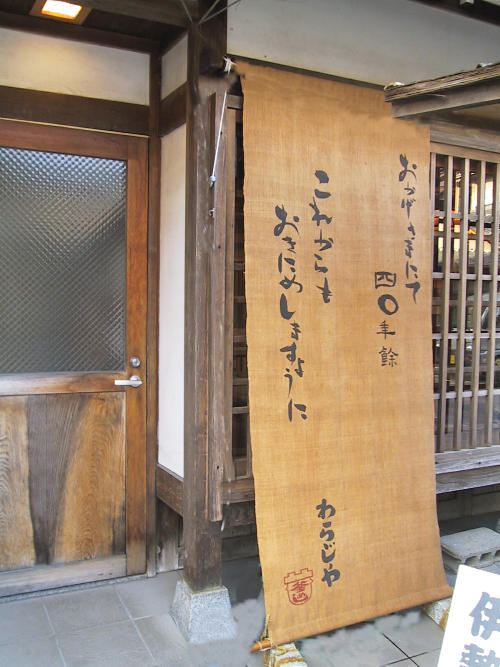 おかげさまにて
四〇年餘
これからも
おきにめしますように
わらじや
伊勢